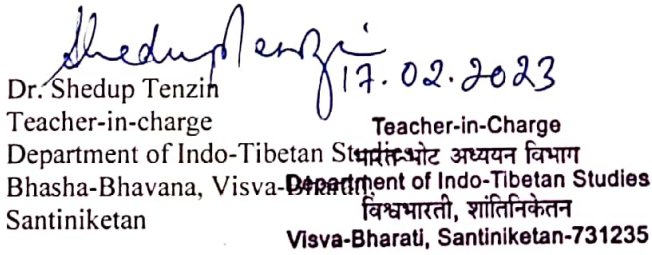 Shedup Tenzin
17.02.2023
Dr. Shedup Tenzin
Teacher-in-charge
Department of Indo-Tibetan Studies
Bhasha-Bhavana, Visva-Bharati,
Santiniketan
Teacher-in-Charge
भारत-भोट अध्ययन विभाग
Department of Indo-Tibetan Studies
विश्वभारती, शांतिनिकेतन
Visva-Bharati, Santiniketan-731235